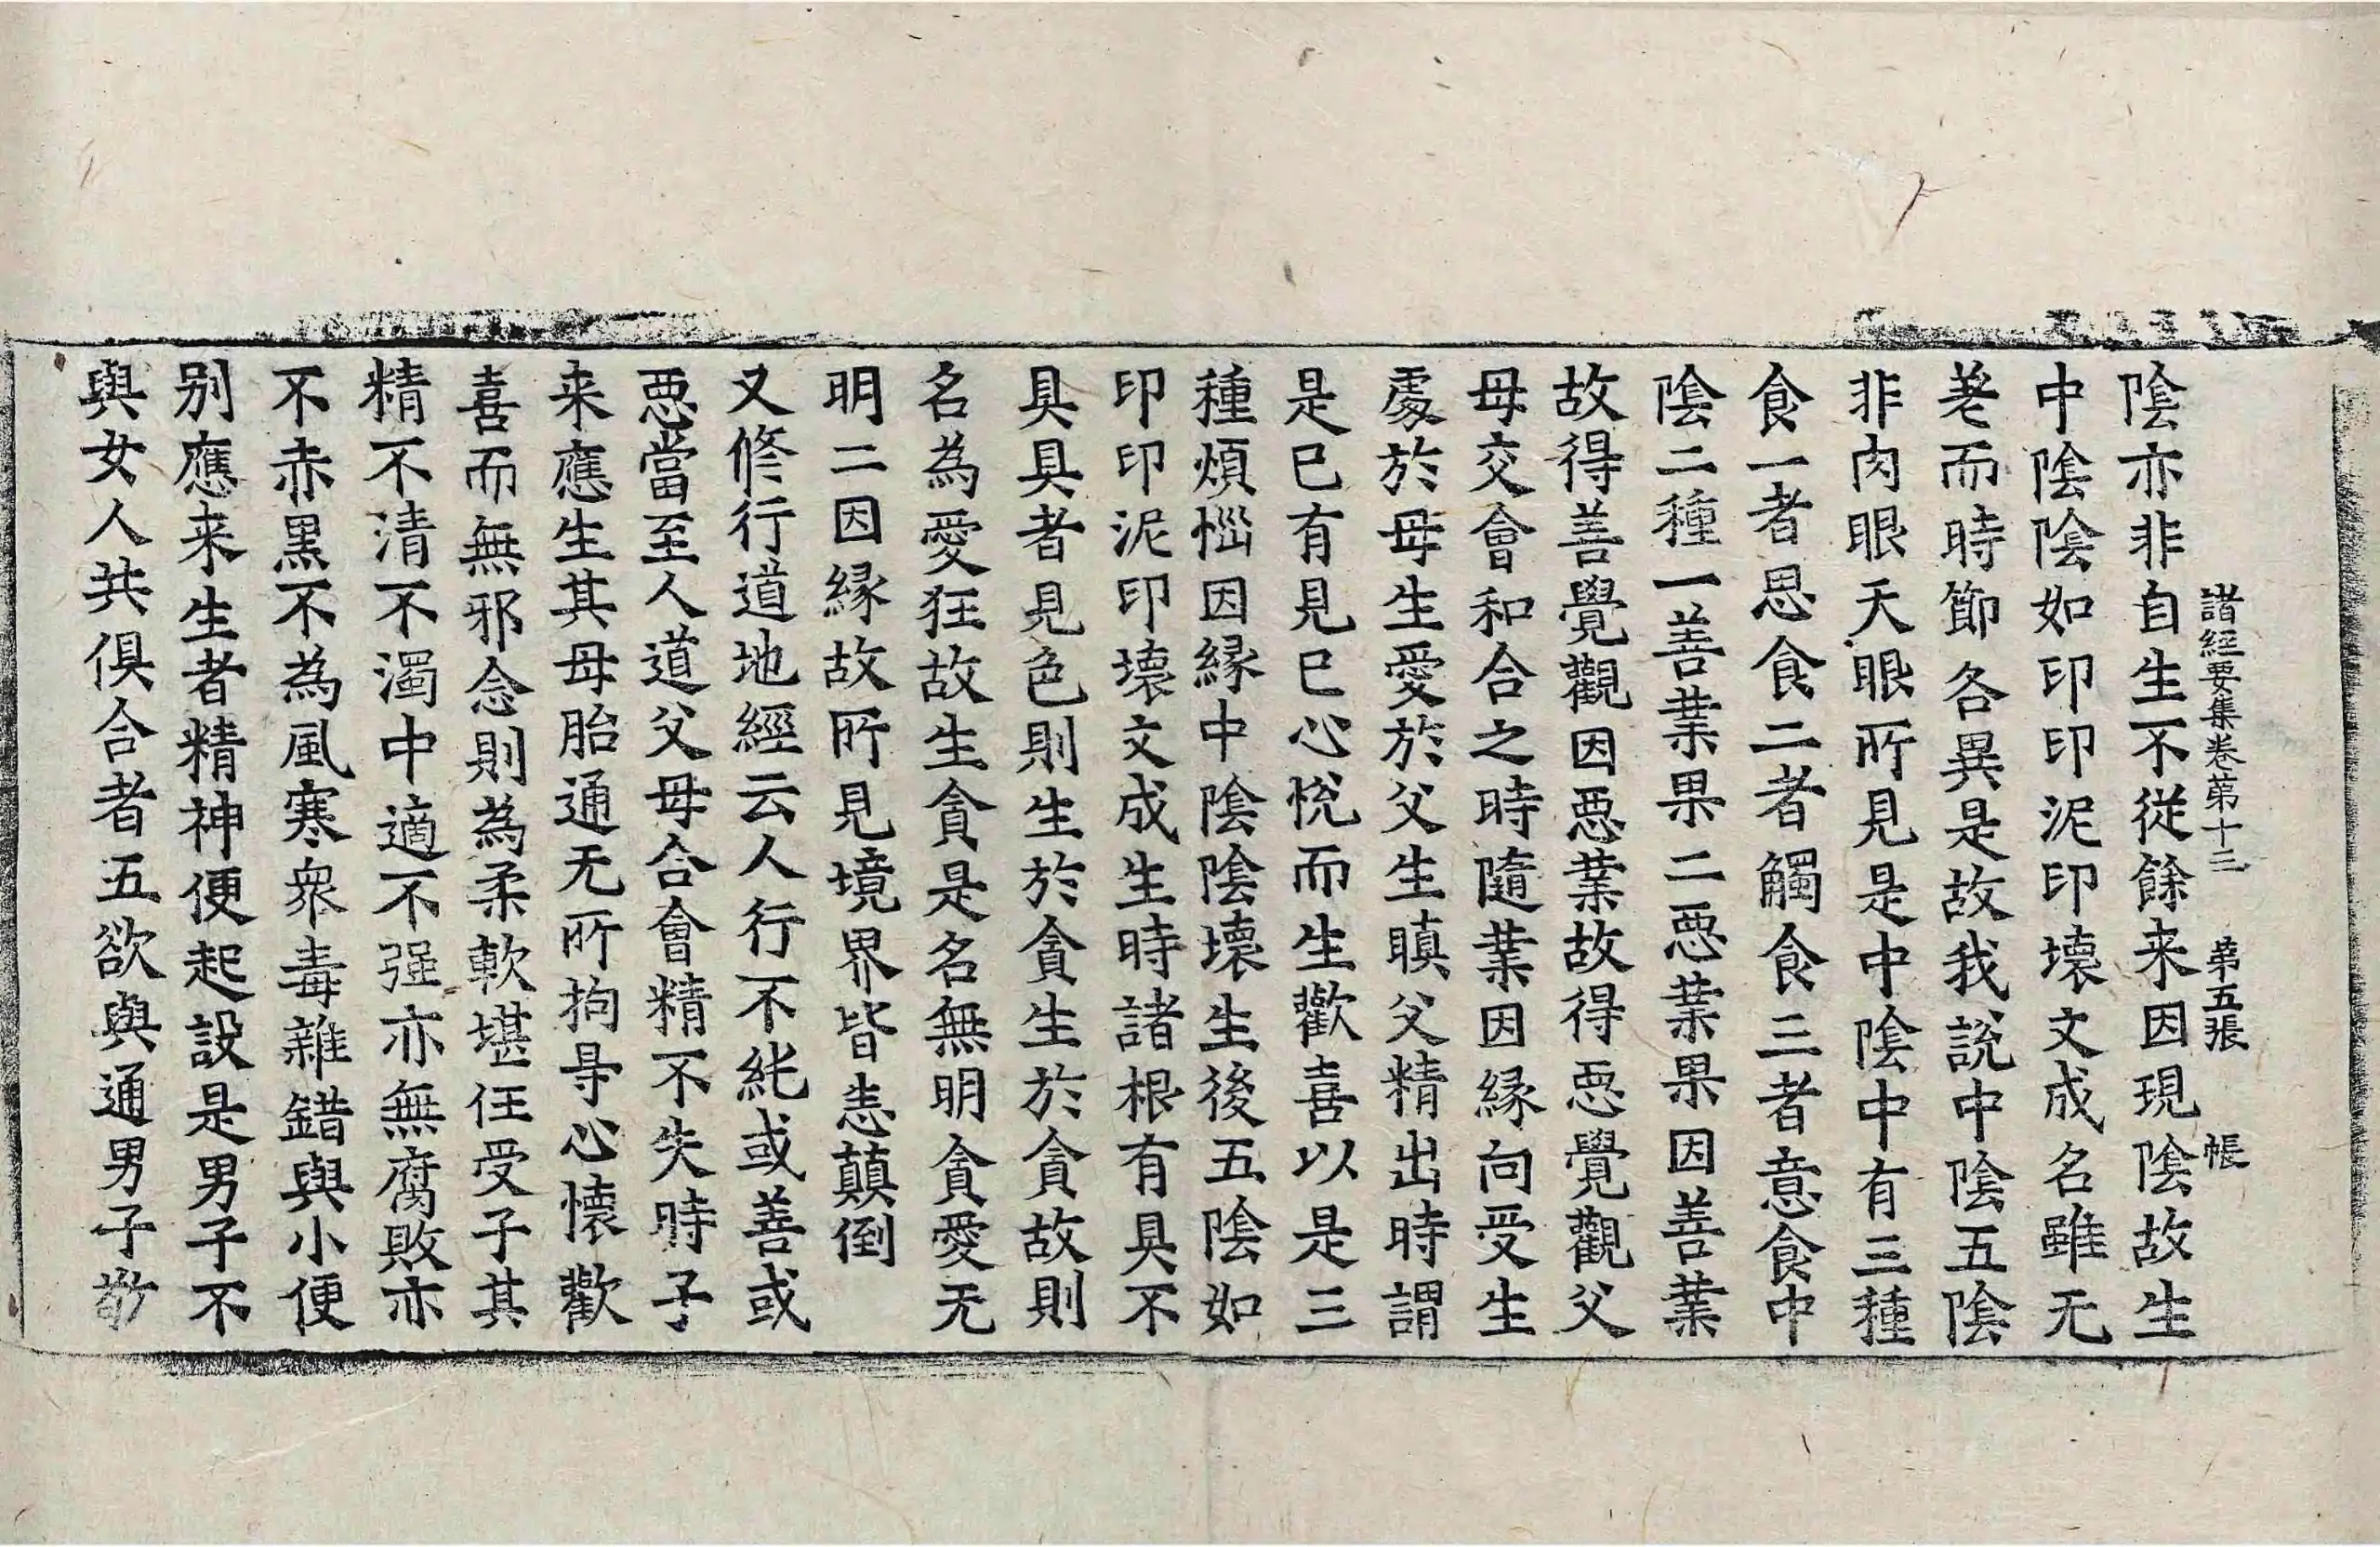 諸經要集卷苐十三 苐五張 帳
陰亦非自生不從餘来因現陰故生
中陰陰如印印泥印壞文成名雖无
差而時節各異是故我說中陰五陰
非肉眼天眼所見是中陰中有三種
食一者思食二者觸食三者意食中
陰二種一善業果二惡業果因善業
故得善覺觀因惡業故得惡覺觀父
母交會和合之時隨業因緣向受生
處於母生愛於父生瞋父精出時謂
是巳有見巳心悅而生歡喜以是三
種煩惱因緣中陰陰壞生後五陰如
印印泥印壞文成生時諸根有具不
具具者見色則生於貪生於貪故則
名為愛狂故生貪是名無明貪愛无
明二因緣故所見境界皆悉顛倒
又修行道地經云人行不純或善或
惡當至人道父母合會精不失時子
来應生其母胎通无所拘㝵心懷歡
喜而無邪念則為柔軟堪任受子其
精不清不濁中適不强亦無腐敗亦
不赤黑不為風寒衆毒雜錯與小便
别應来生者精神便起設是男子不
與女人共俱合者五欲與通男子敬